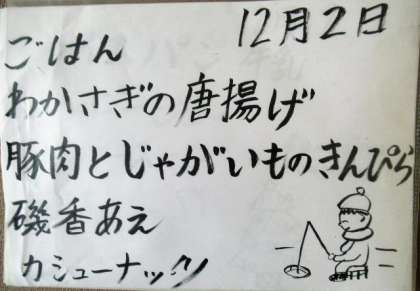 12月2日
ごはん
わかさぎの唐揚げ
豚肉とじゃがいものきんぴら
磯香あえ
カシューナッツ